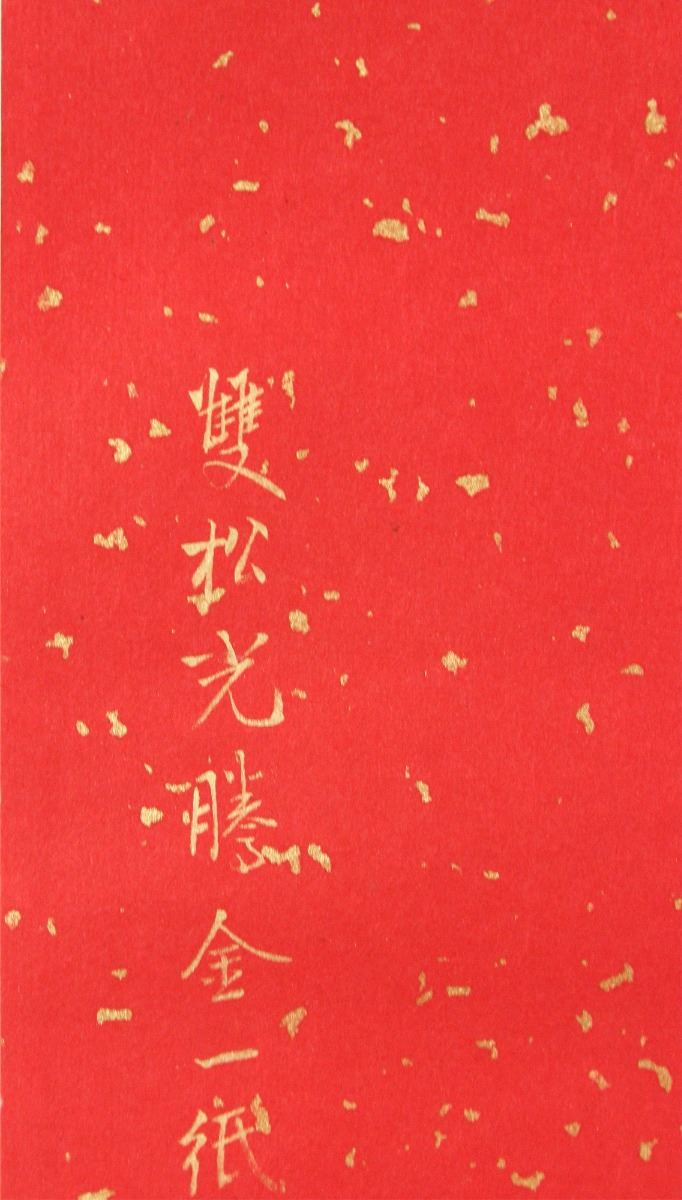 雙松光騰金一紙